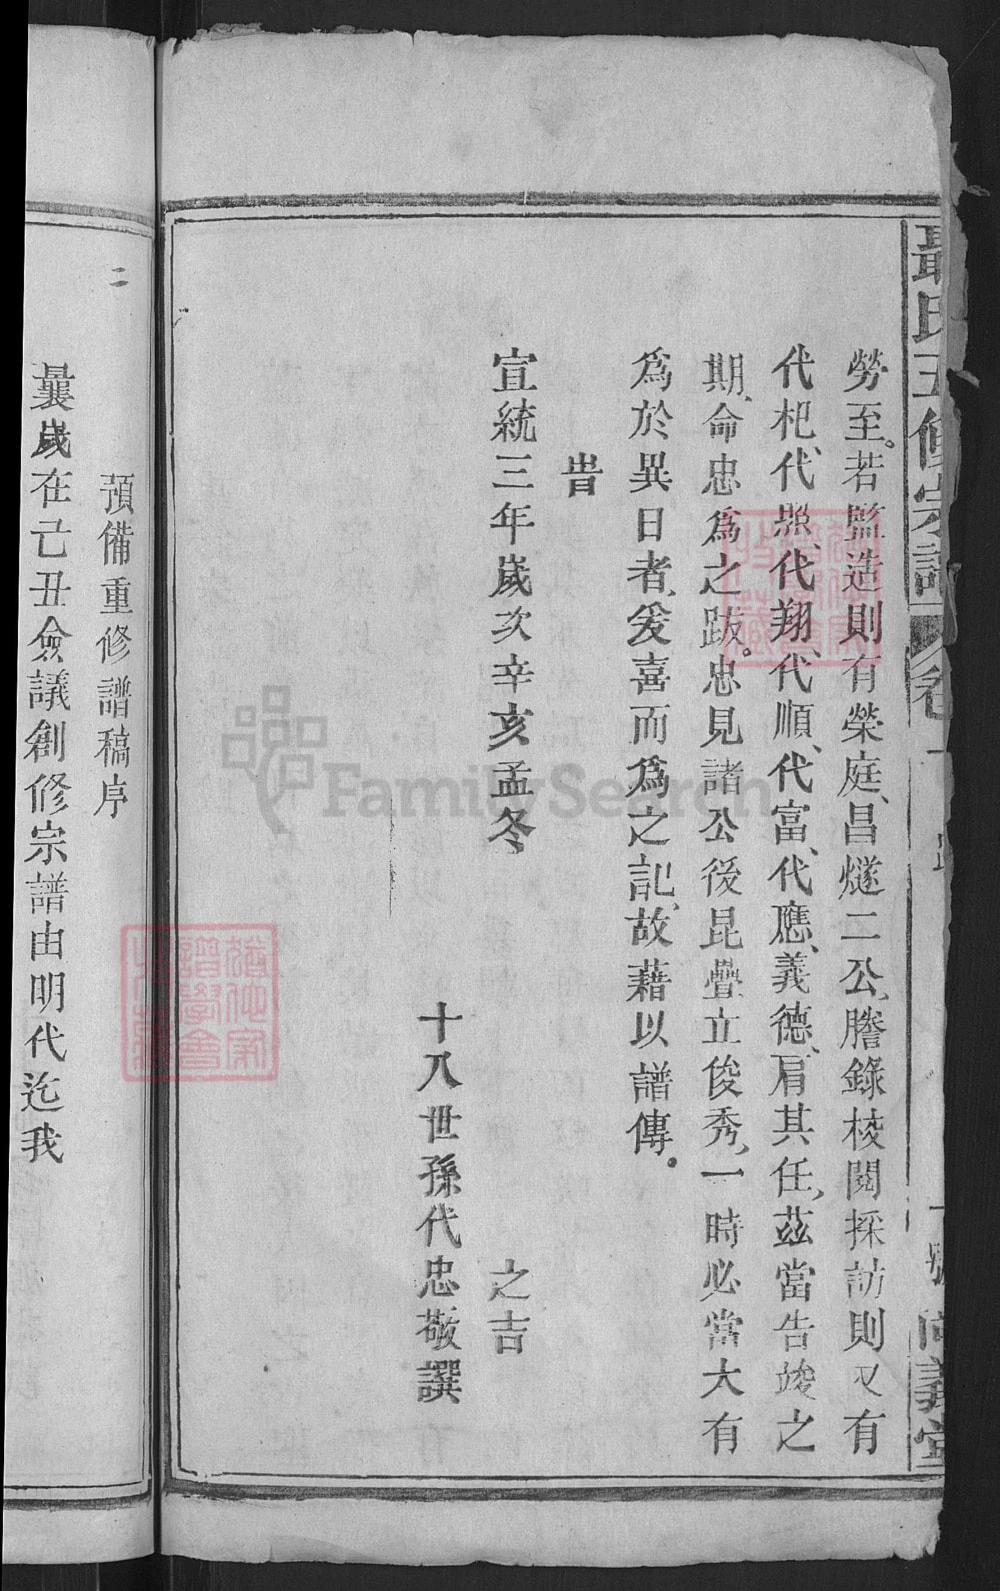 聶氏五修宗譜 卷 尚義堂
勞至。若監造則有榮庭、昌燧二公、謄錄校閱採訪則又有
代杞、代照、代翔、代順、代富、代應、義德、肩其任、茲當告竣之
期、命忠為之跋。忠見諸公後昆疊立俊秀、一時必當大有
為於異日者、爰喜而為之記、故藉以譜傳。
旹
宣統三年歲次辛亥孟冬 之吉
十八世孫代忠敬譔
二 預備重修譜稿序
曩歲在己丑僉議創修宗譜由明代迄我
FamilySearch